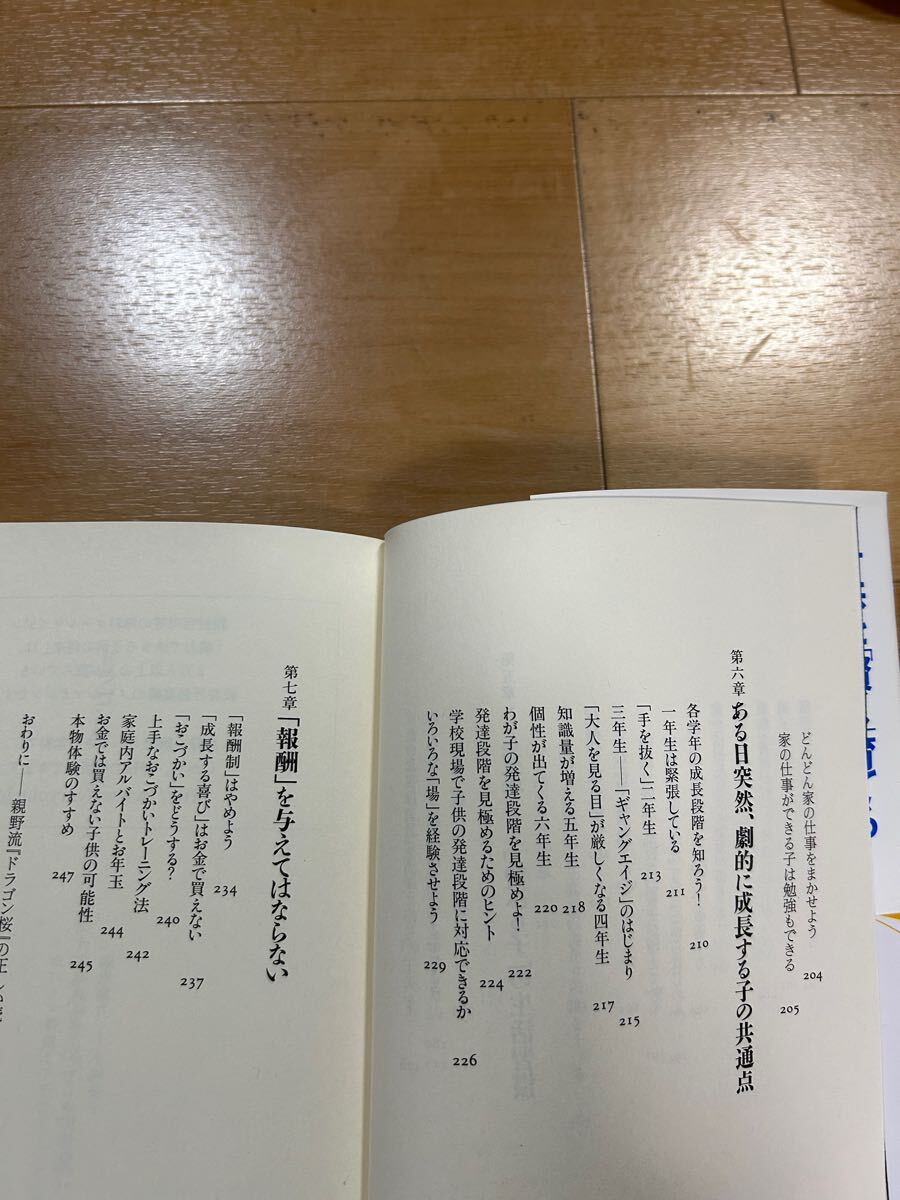 どんどん家の仕事をまかせよう 204
家の仕事ができる子は勉強もできる 205
第六章 ある日突然、劇的に成長する子の共通点
各学年の成長段階を知ろう! 210
一年生は緊張している 211
「手を抜く」二年生 213
三年生――「ギャングエイジ」のはじまり 215
「大人を見る目」が厳しくなる四年生 217
知識量が増える五年生 218
個性が出てくる六年生 220
わが子の発達段階を見極めよ! 222
発達段階を見極めるためのヒント 224
学校現場で子供の発達段階に対応できるか 226
いろいろな「場」を経験させよう 229
第七章 「報酬」を与えてはならない
「報酬制」はやめよう 234
「成長する喜び」はお金で買えない 237
「おこづかい」をどうする? 240
上手なおこづかいトレーニング法 242
家庭内アルバイトとお年玉 244
お金では買えない子供の可能性 245
本物体験のすすめ 247
おわりに――親野流『ドラゴン桜』の正しい